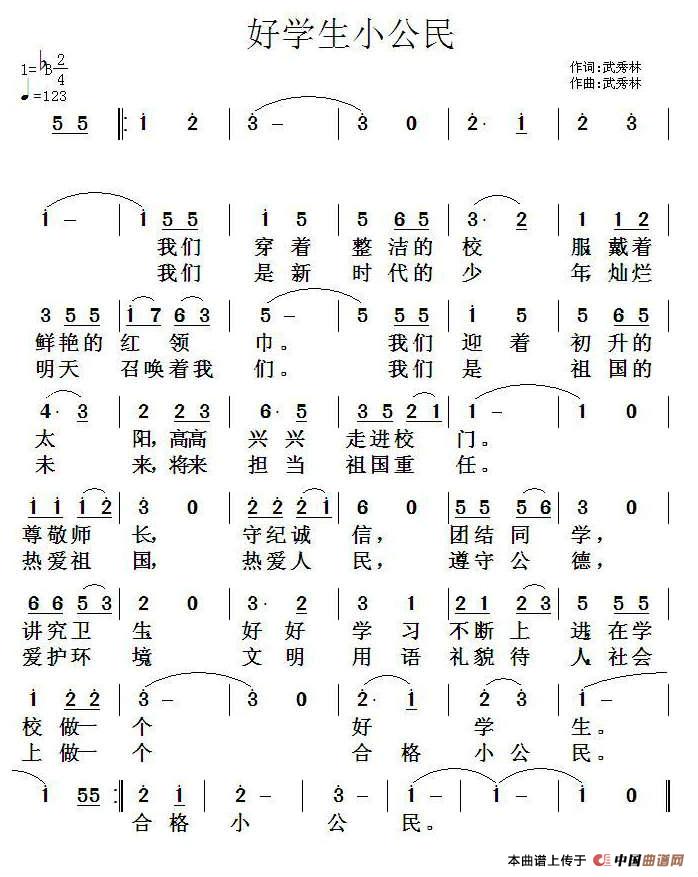 好学生小公民
1=♭B 2/4
♩=123
作词:武秀林
作曲:武秀林
5 5 ‖: 1 2 | 3 - | 3 0 | 2· 1 | 2 3 |
1 - | 1 5 5 | 1 5 | 5 6 5 | 3· 2 | 1 1 2 |
我们 穿着 整洁的 校 服,戴着
我们 是新 时代的 少 年,灿烂
3 5 5 | 1 7 6 3 | 5 - | 5 5 5 | 1 5 | 5 6 5 |
鲜艳的 红领 巾。 我们 迎着 初升的
明天 召唤着我 们。 我们 是 祖国的
4· 3 | 2 2 3 | 6· 5 | 3 5 2 1 | 1 - | 1 0 |
太 阳,高高 兴兴 走进校 门。
未 来,将来 担当 祖国重 任。
1 1 1 2 | 3 0 | 2 2 2 1 | 6 0 | 5 5 5 6 | 3 0 |
尊敬师 长, 守纪诚 信, 团结同 学,
热爱祖 国, 热爱人 民, 遵守公 德,
6 6 5 3 | 2 0 | 3· 2 | 3 1 | 2 1 2 3 | 5 5 5 |
讲究卫 生; 好好 学习 不断上 进;在学
爱护环 境; 文明 用语 礼貌待 人;社会
1 2 2 | 3 - | 3 0 | 2· 1 | 2 3 | 1 - |
校做一 个 好 学 生。
上做一 个 合格 小公 民。
1 55 :‖ 2 1 | 2 - | 3 - | 1 - | 1 - | 1 0 ‖
合格 小 公 民。
本曲谱上传于 中国曲谱网